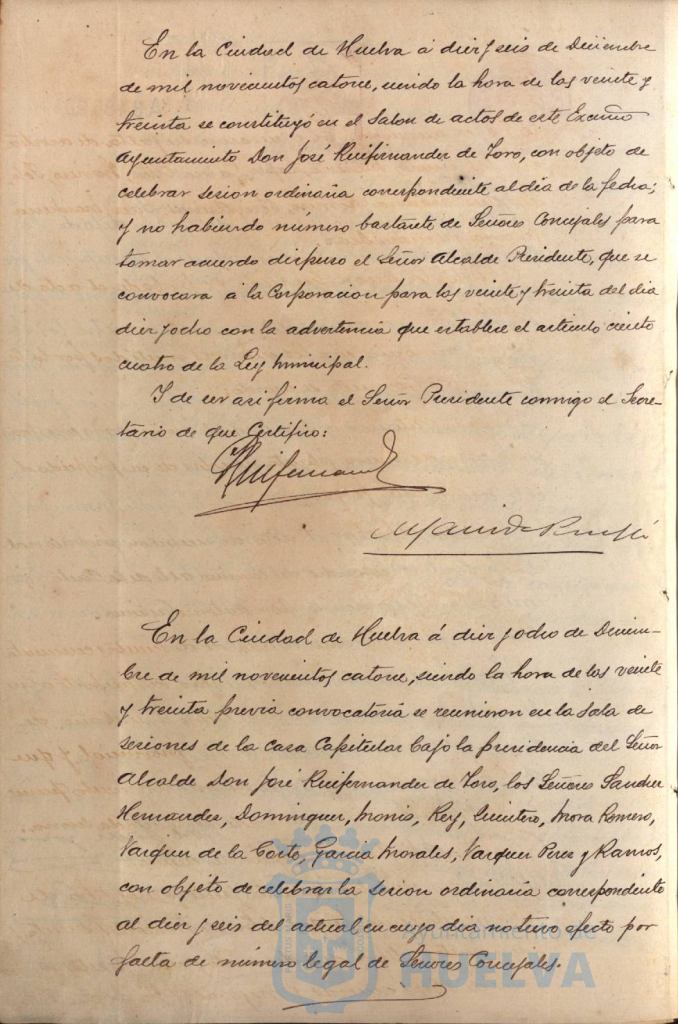 En la Ciudad de Huelva á diez y seis de Diciembre
de mil novecientos catorce, siendo la hora de las veinte y
treinta se constituyó en el Salon de actos de este Excmo
Ayuntamiento Don José Ruifernandez de Toro, con objeto de
celebrar sesion ordinaria correspondiente al dia de la fecha;
y no habiendo número bastante de Señores Concejales para
tomar acuerdo dispuso el Señor Alcalde Presidente, que se
convocara á la Corporacion para las veinte y treinta del dia
diez y ocho con la advertencia que establece el articulo ciento
cuatro de la Ley municipal.
Y de ser asi firma el Señor Presidente conmigo el Secre-
tario de que Certifico:
En la Ciudad de Huelva á diez y ocho de Diciem-
bre de mil novecientos catorce, siendo la hora de las veinte
y treinta previa convocatoria se reunieron en la Sala de
sesiones de la casa Capitular bajo la presidencia del Señor
Alcalde Don José Ruifernandez de Toro, los Señores Sanchez
Hernandez, Dominguez, Monis, Rey, Quintero, Mora Romero,
Vazquez de la Corte, Garcia Morales, Vazquez Perez y Ramos,
con objeto de celebrar la sesion ordinaria correspondiente
al diez y seis del actual en cuyo dia no tuvo efecto por
falta de número legal de Señores Concejales.
Ayuntamiento de
HUELVA